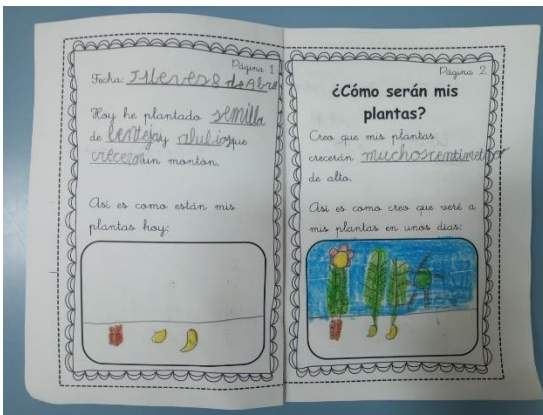 Página 1
Fecha: Jueves 8 de Abril
Hoy he plantado semilla
de lenteja y alubias que
crecerán un montón.
Así es como están mis
plantas hoy:
Página 2
¿Cómo serán mis
plantas?
Creo que mis plantas
crecerán muchos centimetros
de alto.
Así es como creo que veré a
mis plantas en unos días: